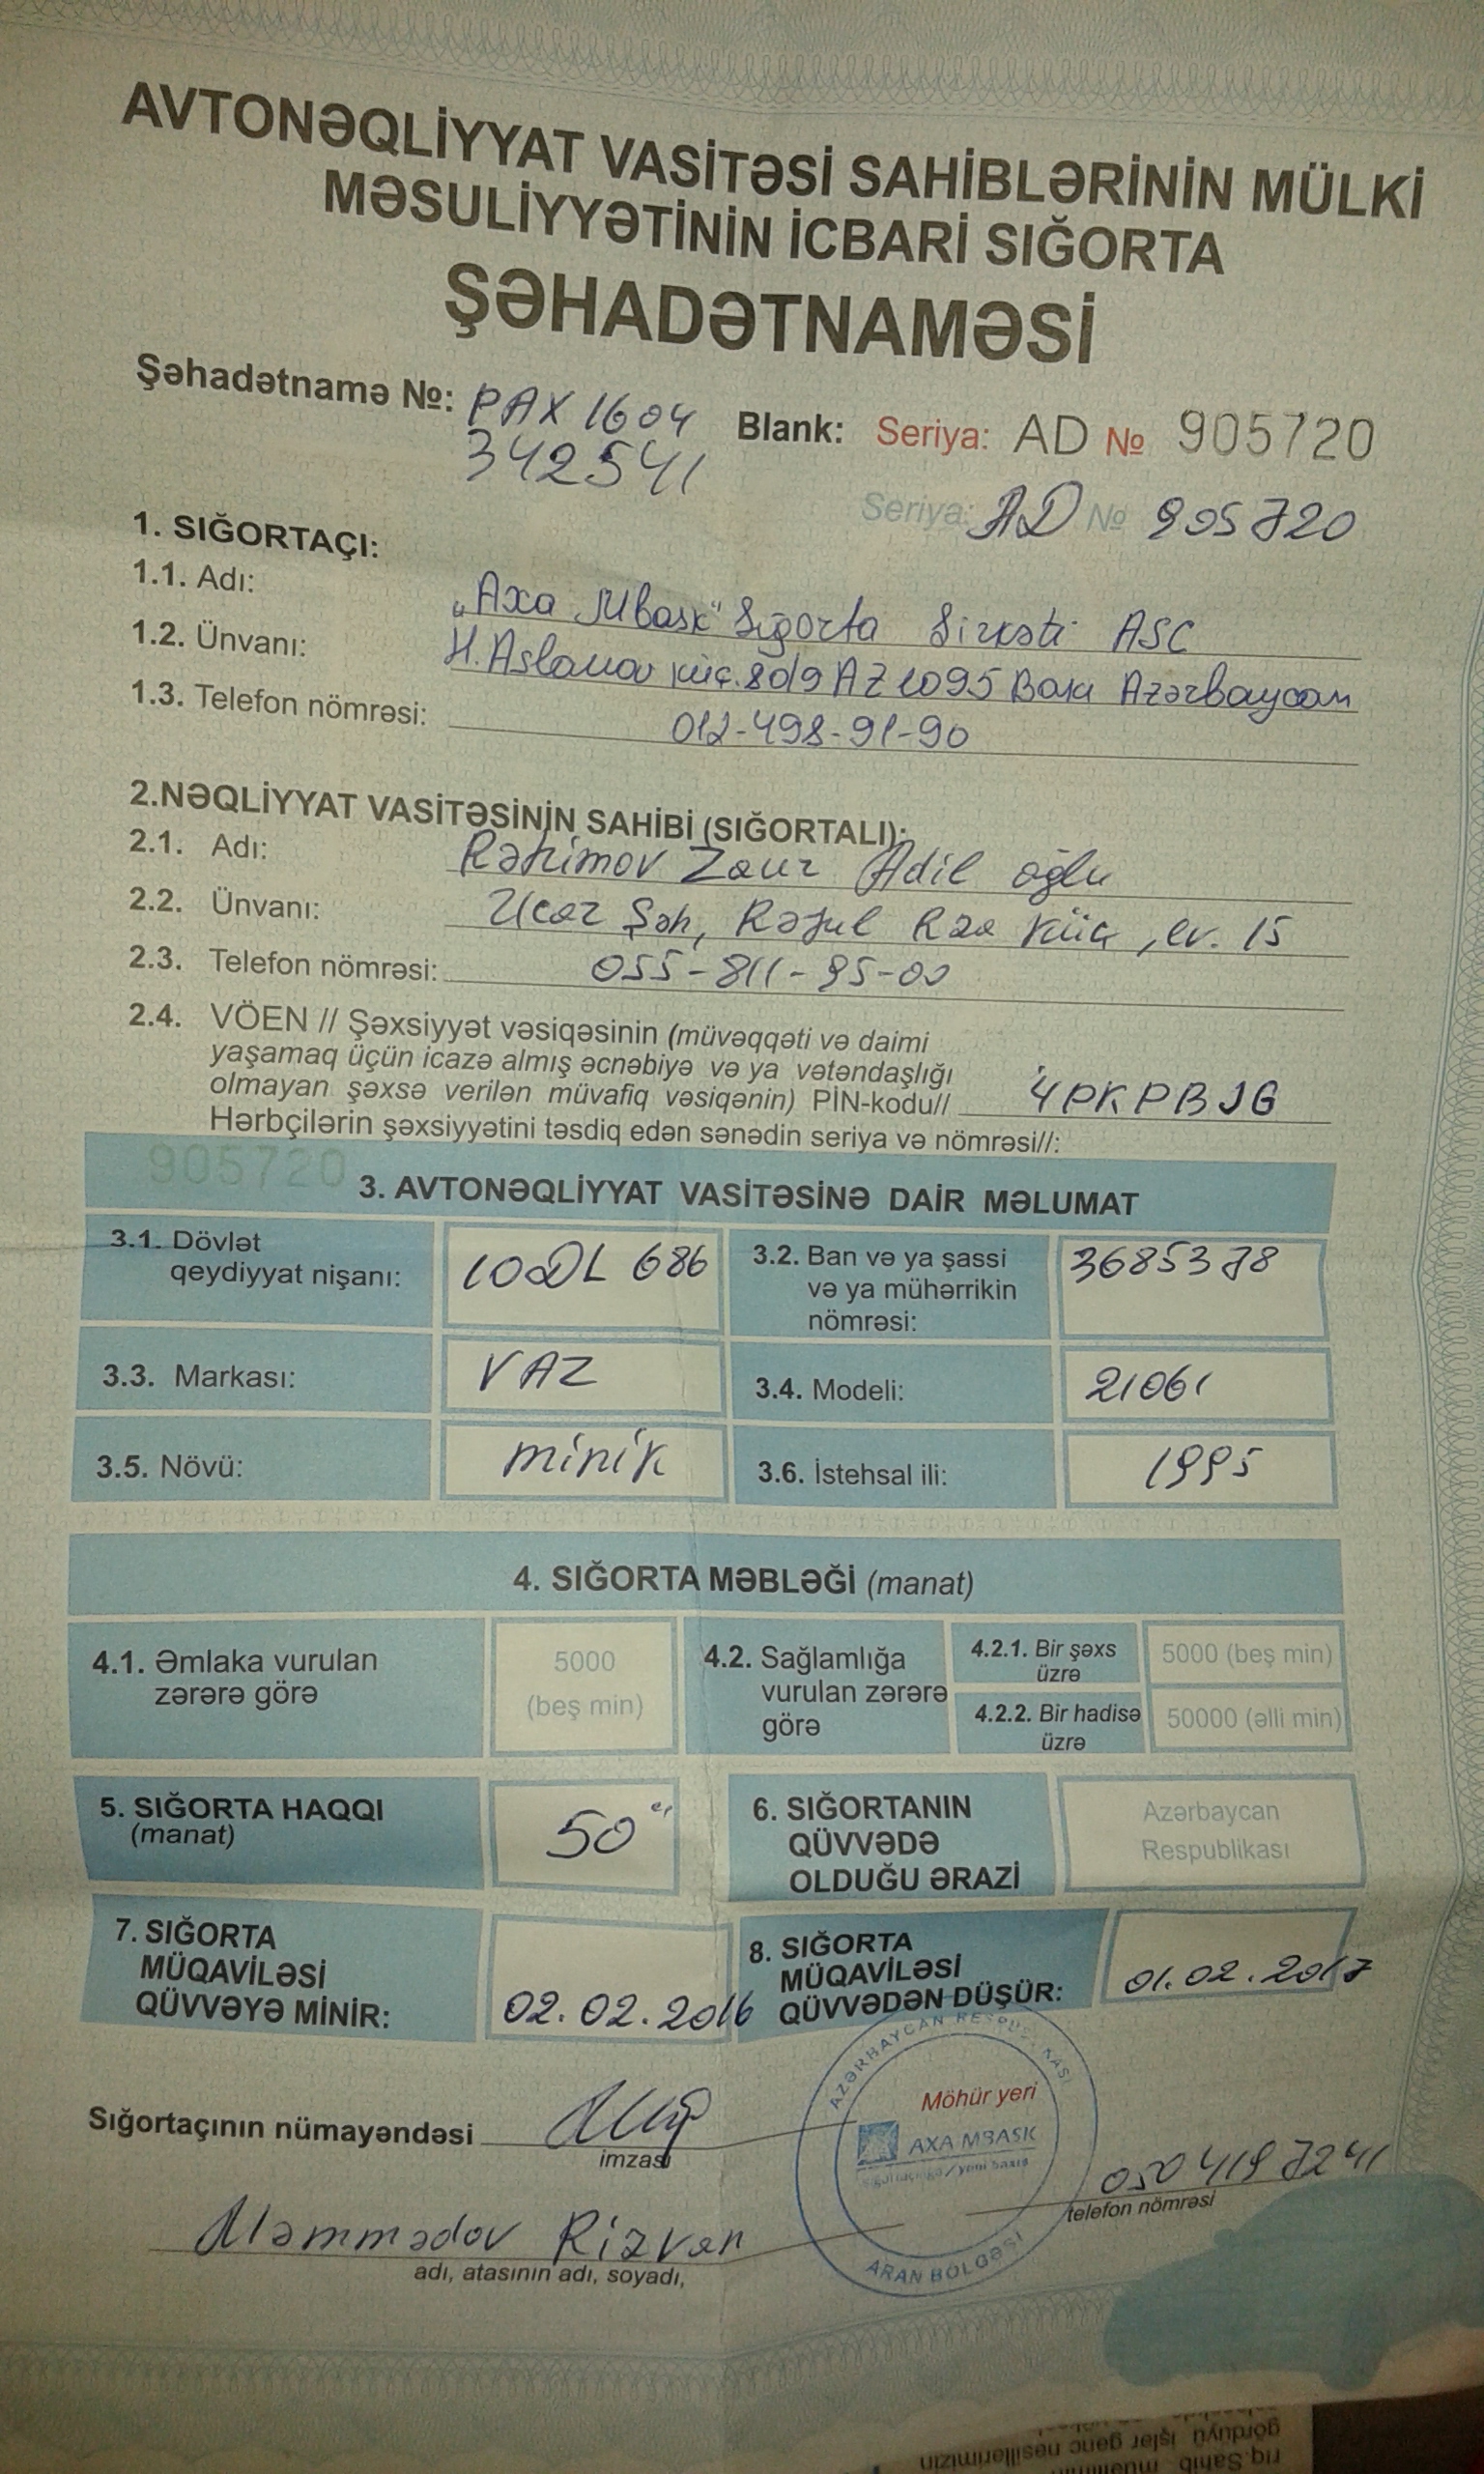 AVTONƏQLİYYAT VASİTƏSİ SAHİBLƏRİNİN MÜLKİ
MƏSULİYYƏTİNİN İCBARİ SIĞORTA
ŞƏHADƏTNAMƏSİ
Şəhadətnamə №: PAX 1604
342541
Blank: Seriya: AD № 905720
Seriya: AD № 905720
1. SIĞORTAÇI:
1.1. Adı: „Axa Mbask“ Sığorta Sirkəti ASC
1.2. Ünvanı: H. Aslanov küç. 80/9 AZ1095 Bakı Azərbaycan
1.3. Telefon nömrəsi: 012-498-91-90
2.NƏQLİYYAT VASİTƏSİNİN SAHİBİ (SIĞORTALI):
2.1. Adı: Rəhimov Zaur Adil oğlu
2.2. Ünvanı: Ucar Şəh, Rəsul Rza küç, ev. 15
2.3. Telefon nömrəsi: 055-811-95-00
2.4. VÖEN // Şəxsiyyət vəsiqəsinin (müvəqqəti və daimi
yaşamaq üçün icazə almış əcnəbiyə və ya vətəndaşlığı
olmayan şəxsə verilən müvafiq vəsiqənin) PİN-kodu// 4PKPBJG
Hərbçilərin şəxsiyyətini təsdiq edən sənədin seriya və nömrəsi//:
905720
3. AVTONƏQLİYYAT VASİTƏSİNƏ DAİR MƏLUMAT
3.1. Dövlət
qeydiyyat nişanı: 10DL 686
3.2. Ban və ya şassi
və ya mühərrikin
nömrəsi: 3685378
3.3. Markası: VAZ
3.4. Modeli: 21061
3.5. Növü: minik
3.6. İstehsal ili: 1995
4. SIĞORTA MƏBLƏĞİ (manat)
4.1. Əmlaka vurulan
zərərə görə
5000
(beş min)
4.2. Sağlamlığa
vurulan zərərə
görə
4.2.1. Bir şəxs
üzrə
5000 (beş min)
4.2.2. Bir hadisə
üzrə
50000 (əlli min)
5. SIĞORTA HAQQI
(manat)
50
6. SIĞORTANIN
QÜVVƏDƏ
OLDUĞU ƏRAZİ
Azərbaycan
Respublikası
7. SIĞORTA
MÜQAVİLƏSİ
QÜVVƏYƏ MİNİR: 02.02.2016
8. SIĞORTA
MÜQAVİLƏSİ
QÜVVƏDƏN DÜŞÜR: 01.02.2017
AZƏRBAYCAN RESPUBLİKASI
Möhür yeri
AXA MBASK
ARAN BÖLGƏSİ
Sığortaçının nümayəndəsi
imzası
050 419 72 41
telefon nömrəsi
Məmmədov Rizvan
adı, atasının adı, soyadı,
gördüyü işlər gənc nəsillərimizin